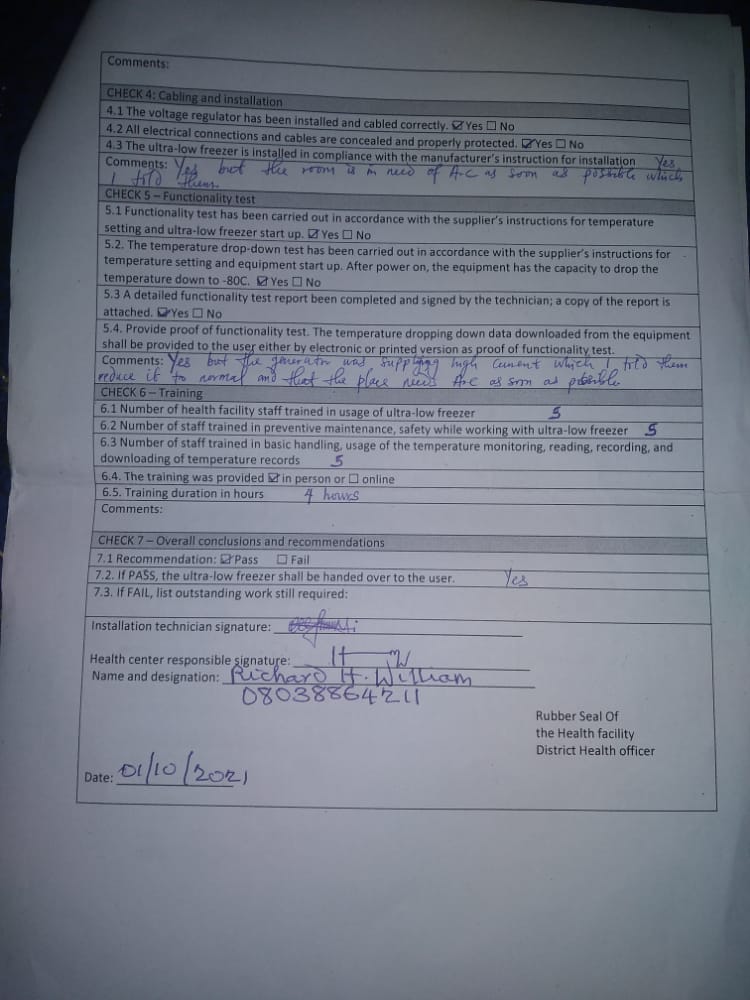 Comments:
CHECK 4: Cabling and installation
4.1 The voltage regulator has been installed and cabled correctly. ☑ Yes ☐ No
4.2 All electrical connections and cables are concealed and properly protected. ☑Yes ☐ No
4.3 The ultra-low freezer is installed in compliance with the manufacturer's instruction for installation Yes
Comments: Yes but the room is in need of A-C as soon as possible which
I told them
CHECK 5 – Functionality test
5.1 Functionality test has been carried out in accordance with the supplier's instructions for temperature
setting and ultra-low freezer start up. ☑ Yes ☐ No
5.2. The temperature drop-down test has been carried out in accordance with the supplier's instructions for
temperature setting and equipment start up. After power on, the equipment has the capacity to drop the
temperature down to -80C. ☑ Yes ☐ No
5.3 A detailed functionality test report been completed and signed by the technician; a copy of the report is
attached. ☑Yes ☐ No
5.4. Provide proof of functionality test. The temperature dropping down data downloaded from the equipment
shall be provided to the user either by electronic or printed version as proof of functionality test.
Comments: Yes but the generator was supplying high current which I told them
reduce it to normal and that the place needs A-C as soon as possible
CHECK 6 – Training
6.1 Number of health facility staff trained in usage of ultra-low freezer 5
6.2 Number of staff trained in preventive maintenance, safety while working with ultra-low freezer 5
6.3 Number of staff trained in basic handling, usage of the temperature monitoring, reading, recording, and
downloading of temperature records 5
6.4. The training was provided ☑ in person or ☐ online
6.5. Training duration in hours 4 hours
Comments:
CHECK 7 – Overall conclusions and recommendations
7.1 Recommendation: ☑ Pass ☐ Fail
7.2. If PASS, the ultra-low freezer shall be handed over to the user. Yes
7.3. If FAIL, list outstanding work still required:
Installation technician signature:
Health center responsible signature:
Name and designation: Richard H. William
08038864211
Rubber Seal Of
the Health facility
District Health officer
Date: 01/10/2021